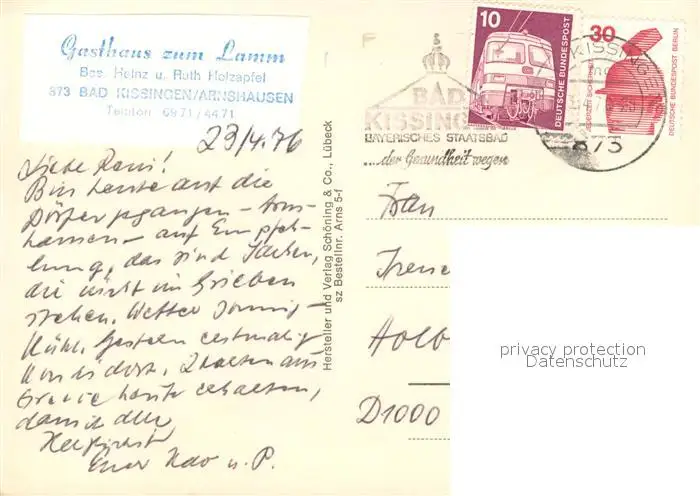 Gasthaus zum Lamm
Bes. Heinz u. Ruth Holzapfel
873 BAD KISSINGEN/ARNSHAUSEN
Telefon 0971/4471
23/4.76
Liebe Reni!
Bin heute auf die
Dörfer gegangen – Arns-
hausen – auf Empfeh-
lung, das sind Sachen,
die nicht im
stehen. Wetter sonnig –
kühl. Gestern erstmalig
2 Karten aus
heute erhalten,
alle
Herzlichst
Euer u. P.
Hersteller und Verlag Schöning & Co., Lübeck
sz Bestellnr. Arns 5-f
BAD
KISSINGEN
BAYERISCHES STAATSBAD
...der Gesundheit wegen
10
DEUTSCHE BUNDESPOST
30
DEUTSCHE BUNDESPOST BERLIN
KISSINGEN
873
Frau
Irene
Holb
D1000
privacy protection
Datenschutz